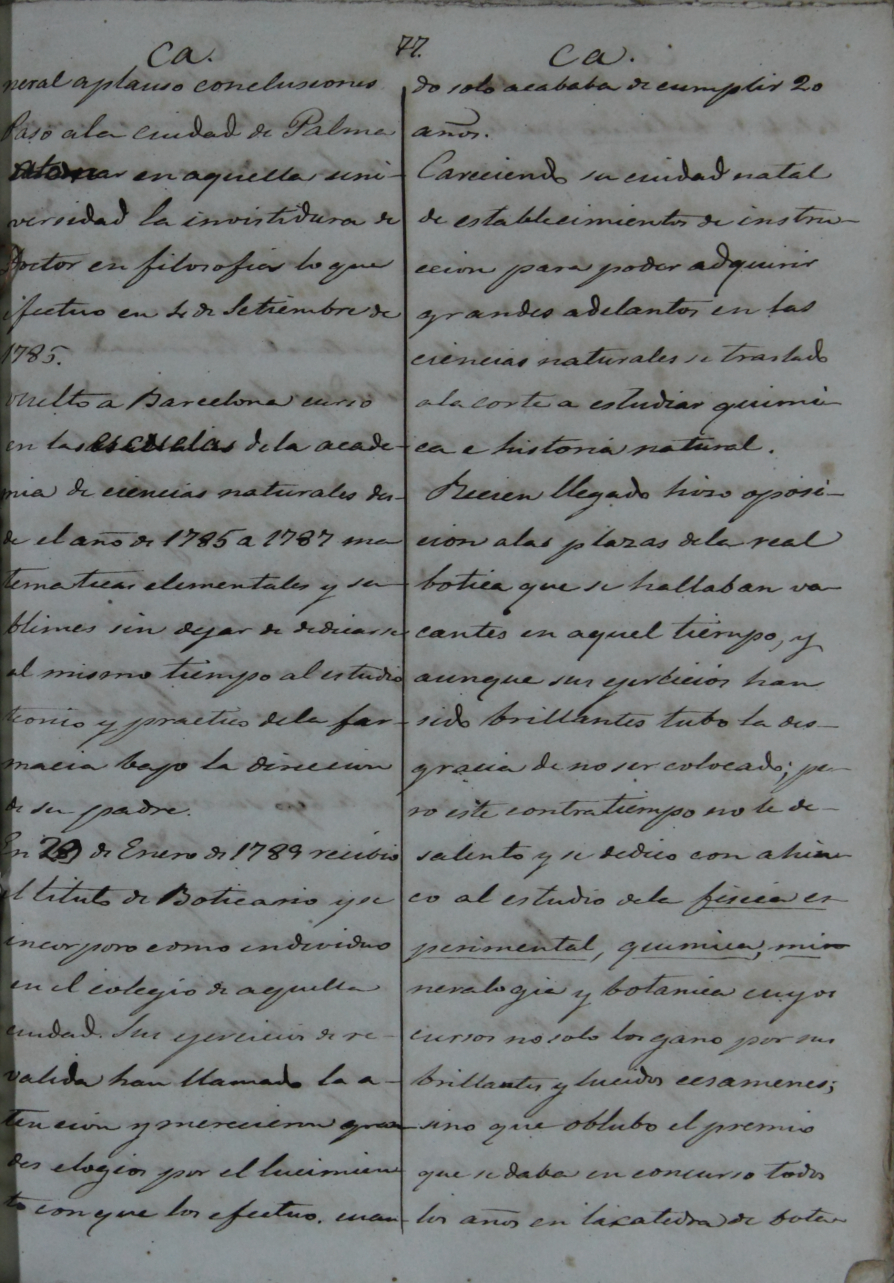 77.
Ca.
neral aplauso conclusiones
Paso ala ciudad de Palma
atomar en aquella uni-
versidad la invistidura de
Doctor en filosofia lo que
ifectuo en 4 de Setiembre de
1785.
vuelto a Barcelona curso
en las escuelas de la acade-
mia de ciencias naturales des-
de el año de 1785 a 1787 ma
tematicas elementales y su-
blimes sin dejar de dedicarse
al mismo tiempo al estudio
teorico y practico dela far-
macia bajo la direccion
de su padre.
En 28 de Enero de 1789 recibio
el titulo de Boticario y se
incorporo como individuo
en el colegio de aquella
ciudad. Sus ejercicios de re-
valida han llamado la a-
tencion y merecieron gran
des elogios por el lucimien
to con que los efectuo. cuan-
Ca.
do solo acababa de cumplir 20
años.
Careciendo su ciudad natal
de establecimientos de instru-
ccion para poder adquirir
grandes adelantos en las
ciencias naturales se traslado
ala corte a estudiar quimi-
ca e historia natural.
Recien llegado hizo oposi-
cion alas plazas dela real
botica que se hallaban va-
cantes en aquel tiempo, y
aunque sus ejercicios han
sido brillantes tubo la des-
gracia de no ser colocado; pe-
ro este contratiempo no le de-
salento y se dedico con ahin-
co al estudio dela fisica es-
perimental, quimica, mi-
neralogia y botanica cuyos
cursos no solo los gano por sus
brillantes y lucidos ecsamenes;
sino que obtubo el premio
que se daba en concurso todos
los años en la catedra de bota-